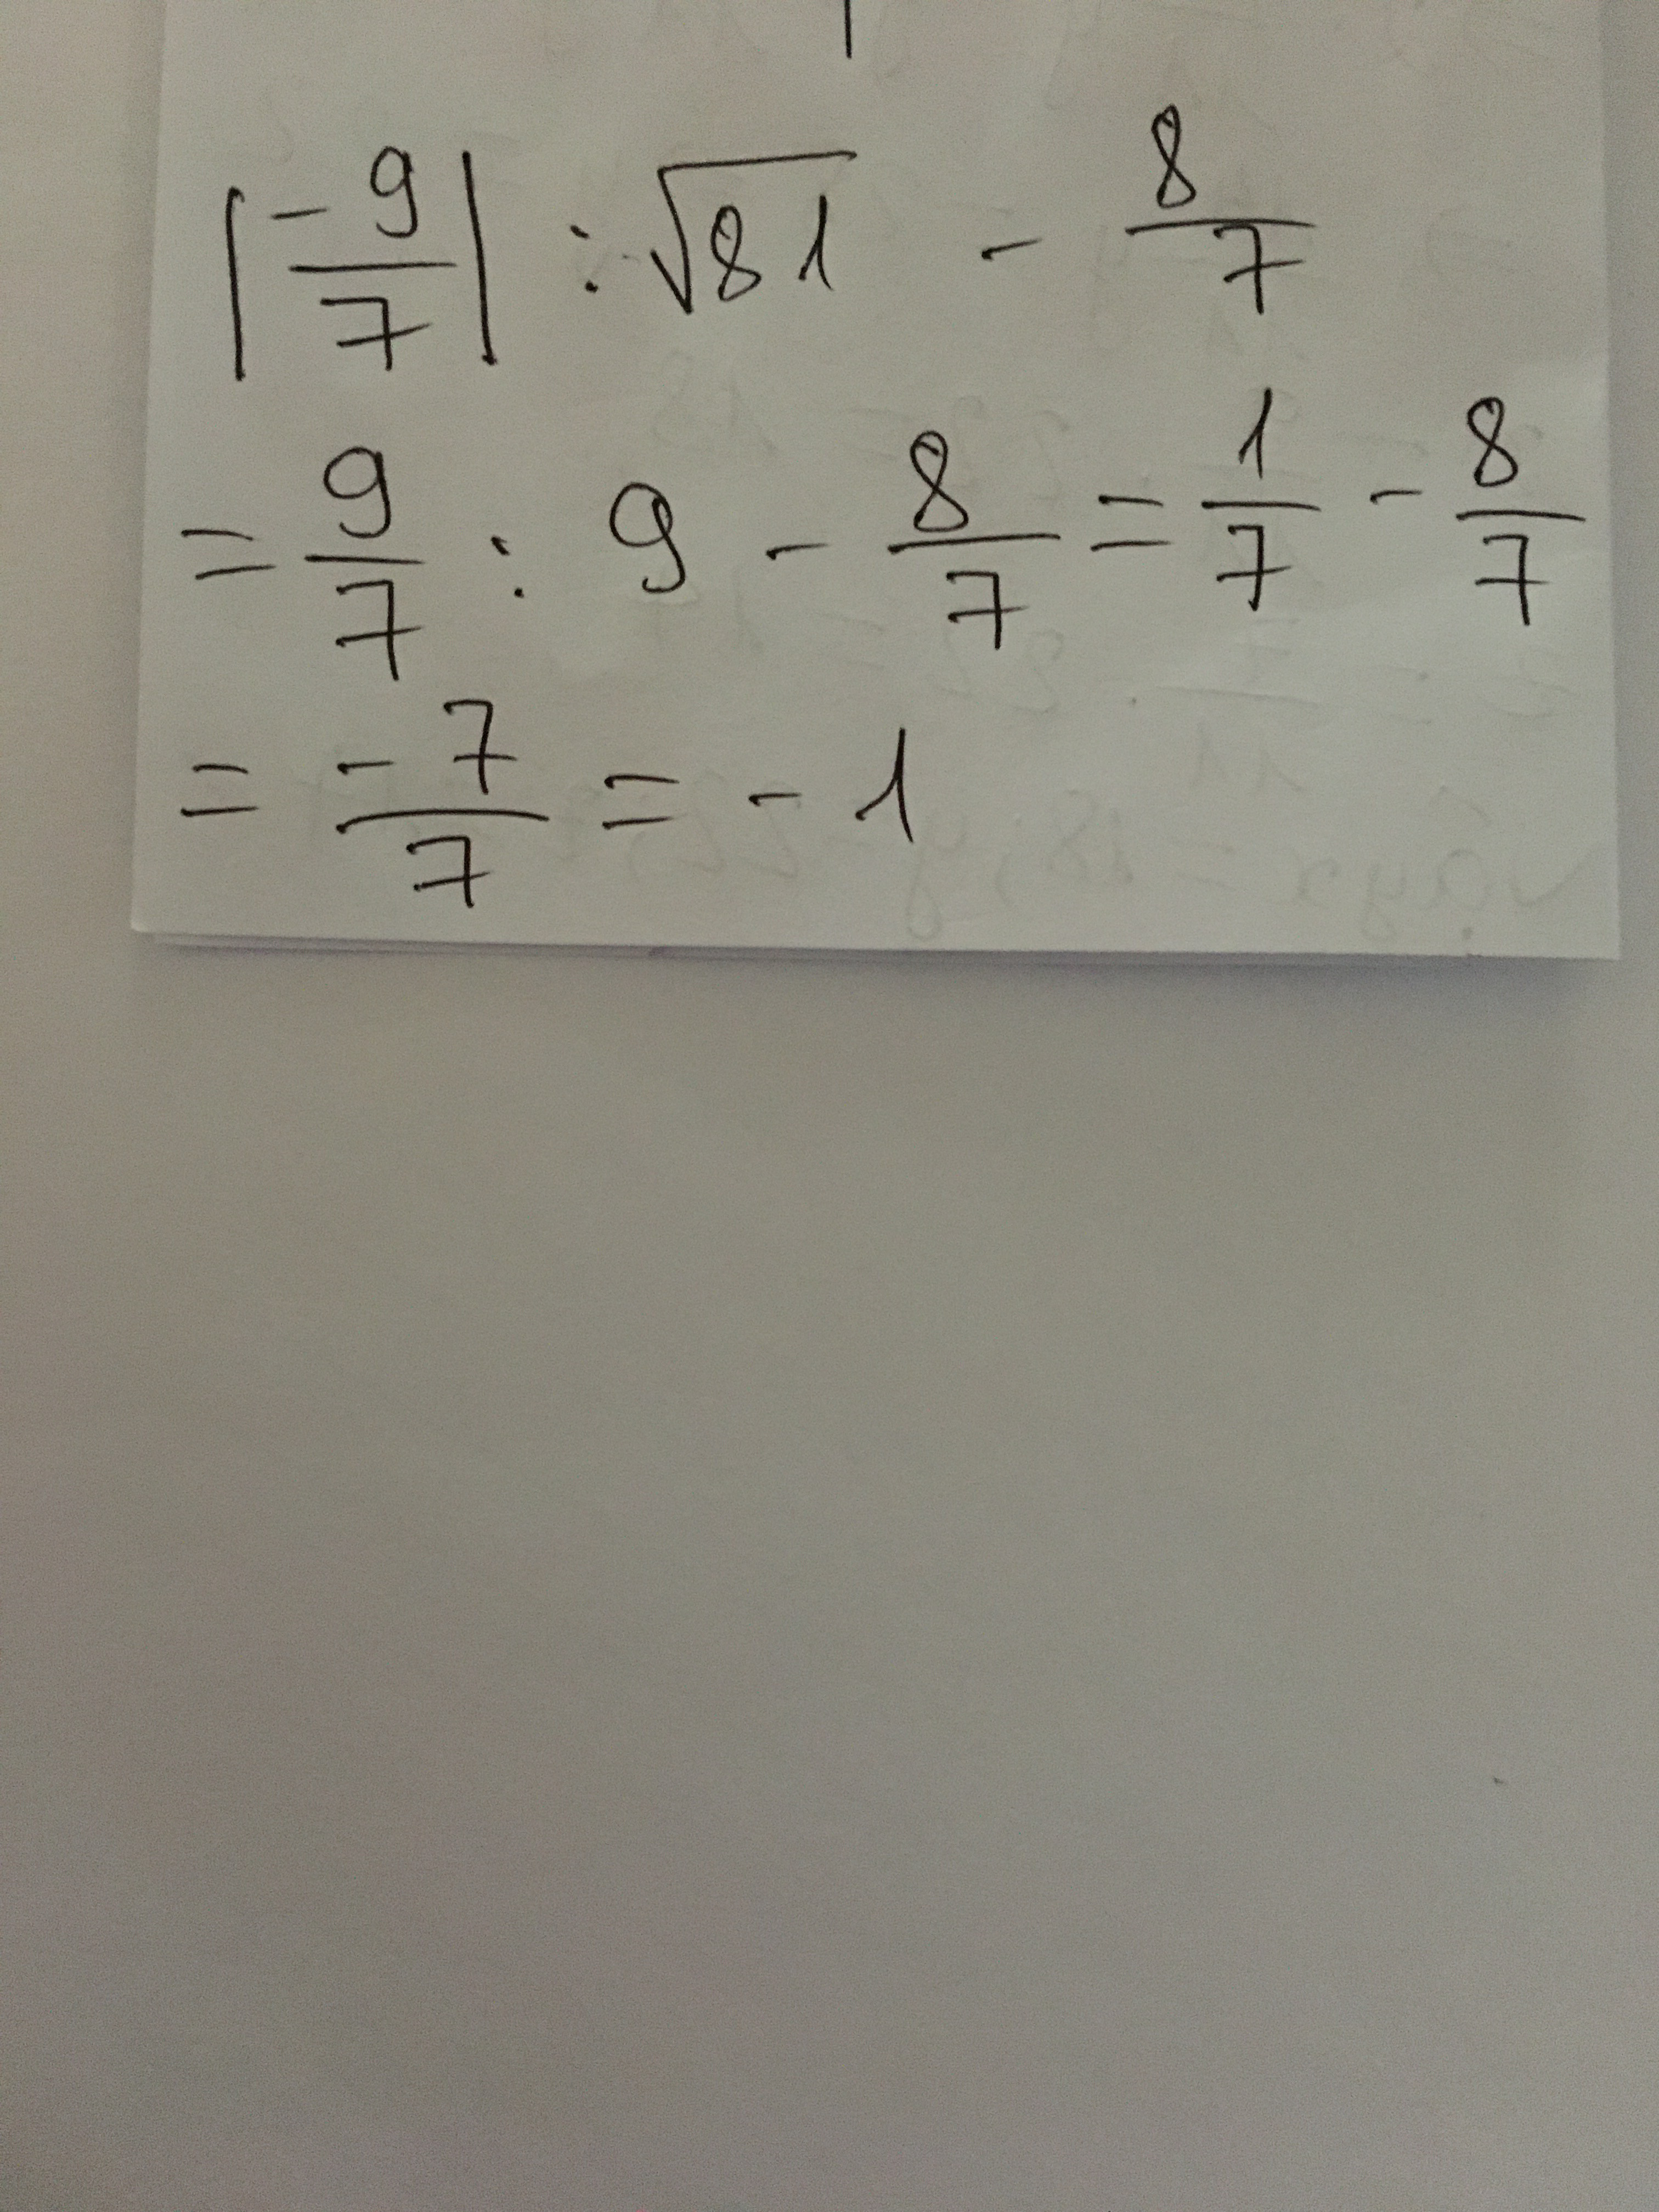 |-9/7| : √81 - 8/7
= 9/7 : 9 - 8/7 = 1/7 - 8/7
= -7/7 = -1